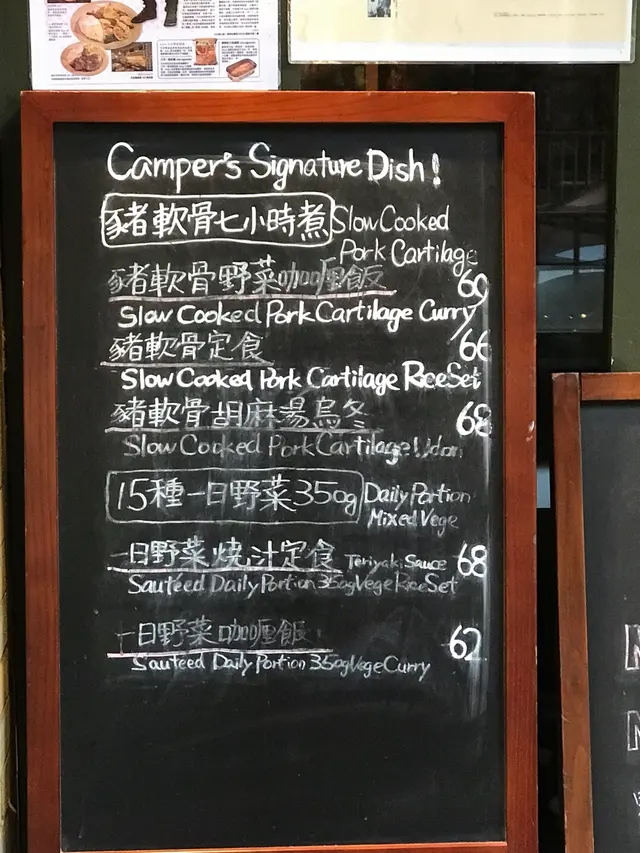 Camper's Signature Dish!
豬軟骨七小時煮 Slow Cooked
Pork Cartilage
豬軟骨野菜咖喱飯 69
Slow Cooked Pork Cartilage Curry
豬軟骨定食 66
Slow Cooked Pork Cartilage Rice Set
豬軟骨胡麻湯烏冬 68
Slow Cooked Pork Cartilage Udon
15種一日野菜350g Daily Portion
Mixed Vege
一日野菜燒汁定食 Teriyaki Sauce 68
Sauteed Daily Portion 350g Vege Rice Set
一日野菜咖喱飯 62
Sauteed Daily Portion 350g Vege Curry